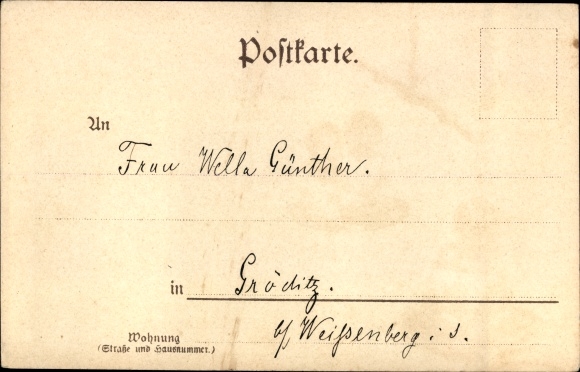 Postkarte.
An
Frau Wella Günther.
in Gröditz.
b/ Weißenberg i. S.
Wohnung
(Straße und Hausnummer.)